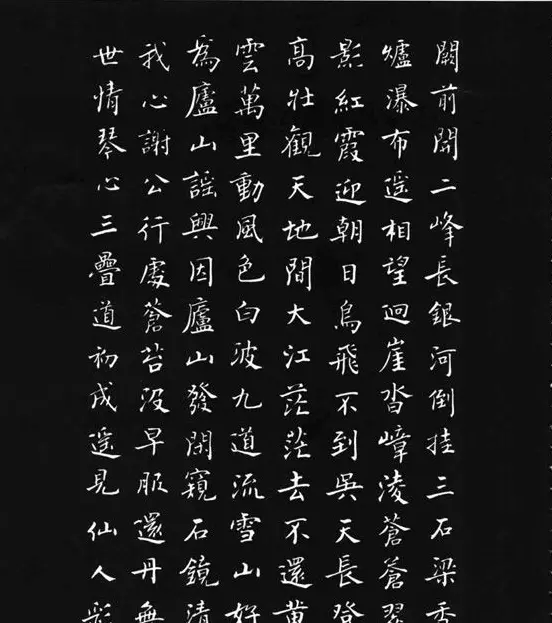 闕前開二峰長銀河倒挂三石梁香
爐瀑布遥相望迴崖沓嶂淩蒼蒼翠
影紅霞迎朝日鳥飛不到吳天長登
高壯觀天地間大江茫茫去不還黄
雲萬里動風色白波九道流雪山好
為廬山謡興因廬山發閑窺石鏡清
我心謝公行處蒼苔没早服還丹無
世情琴心三疊道初成遥見仙人彩